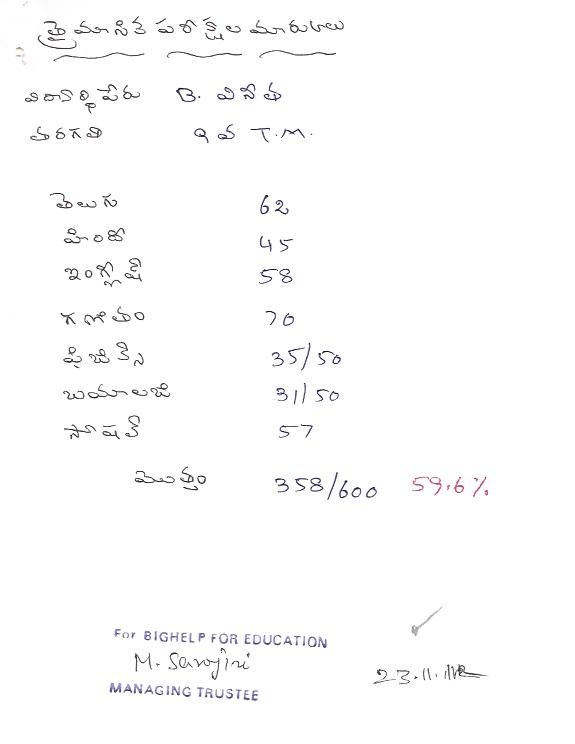 త్రైమాసిక పరీక్షల మార్కులు
విద్యార్థి పేరు B. వినీత
తరగతి 9 వ T.M.
తెలుగు 62
హిందీ 45
ఇంగ్లీష్ 58
గణితం 70
ఫిజిక్స్ 35/50
బయాలజి 31/50
సోషల్ 57
మొత్తం 358/600 59.6%
For BIGHELP FOR EDUCATION
M. Sarojini
MANAGING TRUSTEE
23.11.